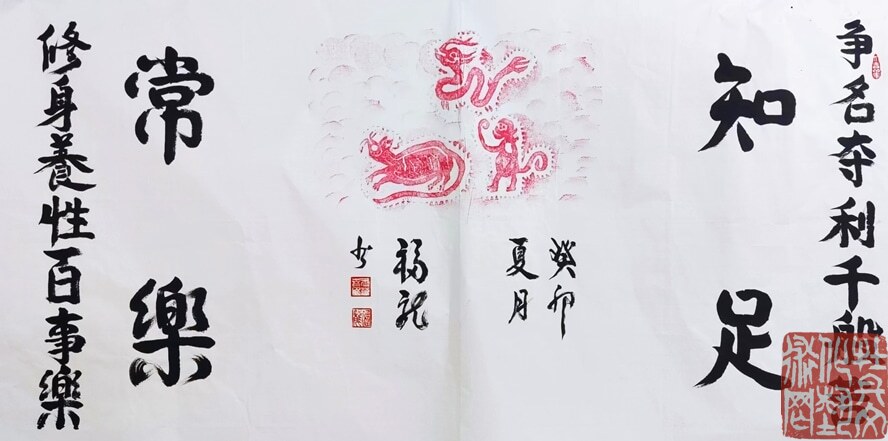 争名夺利千
知足
癸卯
夏月
福龙
书
常樂
修身養性百事樂